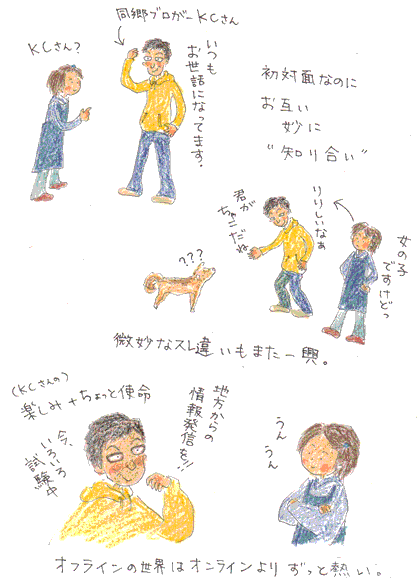 同郷ブロガーKCさん
KCさん?
いつも
お世話になってます。
初対面なのに
お互い
妙に
"知り合い"
君が
ちゃこだね
りりしいなぁ
女の子
ですけどっ
???
微妙なスレ違いもまた一興。
(KCさんの)
楽しみ+ちょっと使命
地方からの
情報発信を!!
今、
いろいろ
試験中
うん
うん
オフラインの世界はオンラインよりずっと熱い。